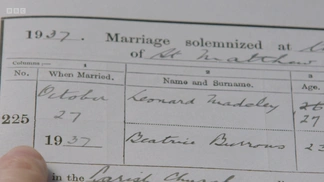 BBC
1937. Marriage solemnized at
of St Matthew
Columns:— 1 2 3
No. When Married. Name and Surname. Age.
October Leonard Madsley 26
27 27
225
1937 Beatrice Burrows 23
in the Parish Church